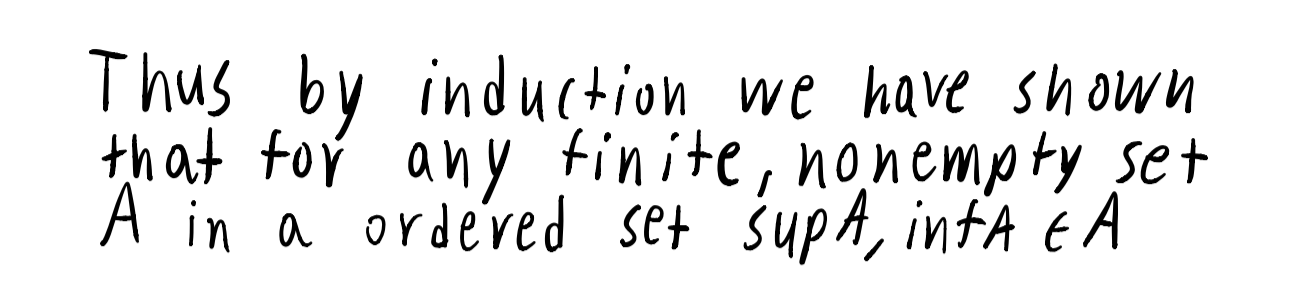 Thus by induction we have shown
that for any finite, nonempty set
A in a ordered set supA, infA ∈ A